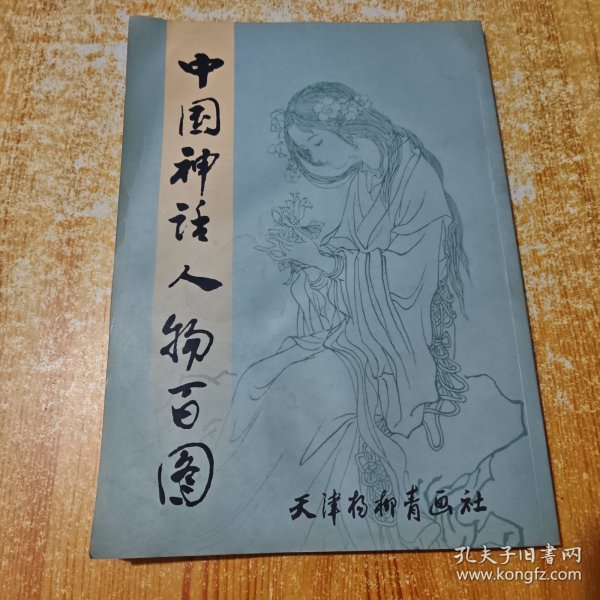 中国神话人物百图
天津杨柳青画社
孔夫子旧书网
www.kongfz.com